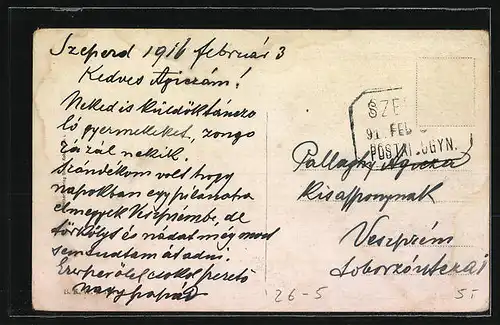 Szeperd 1916 február 3
Kedves Agiczám!
Neked is küldök tánczo
ló gyermekeket, zongo
rázál nekik.
Szándékom vold hogy
napokban egy pilanatra
elmegyek Veszprémbe, de
törkölyt és nádat még most
sem tudtam átadni.
Ezerszer ölel csokol szerető
nagypapád
SZE
91 FEB
POSTAI ÜGYN.
Pallaghy Agicza
kisasszonynak
Veszprém
Toborzó utcza
26-5
5.-